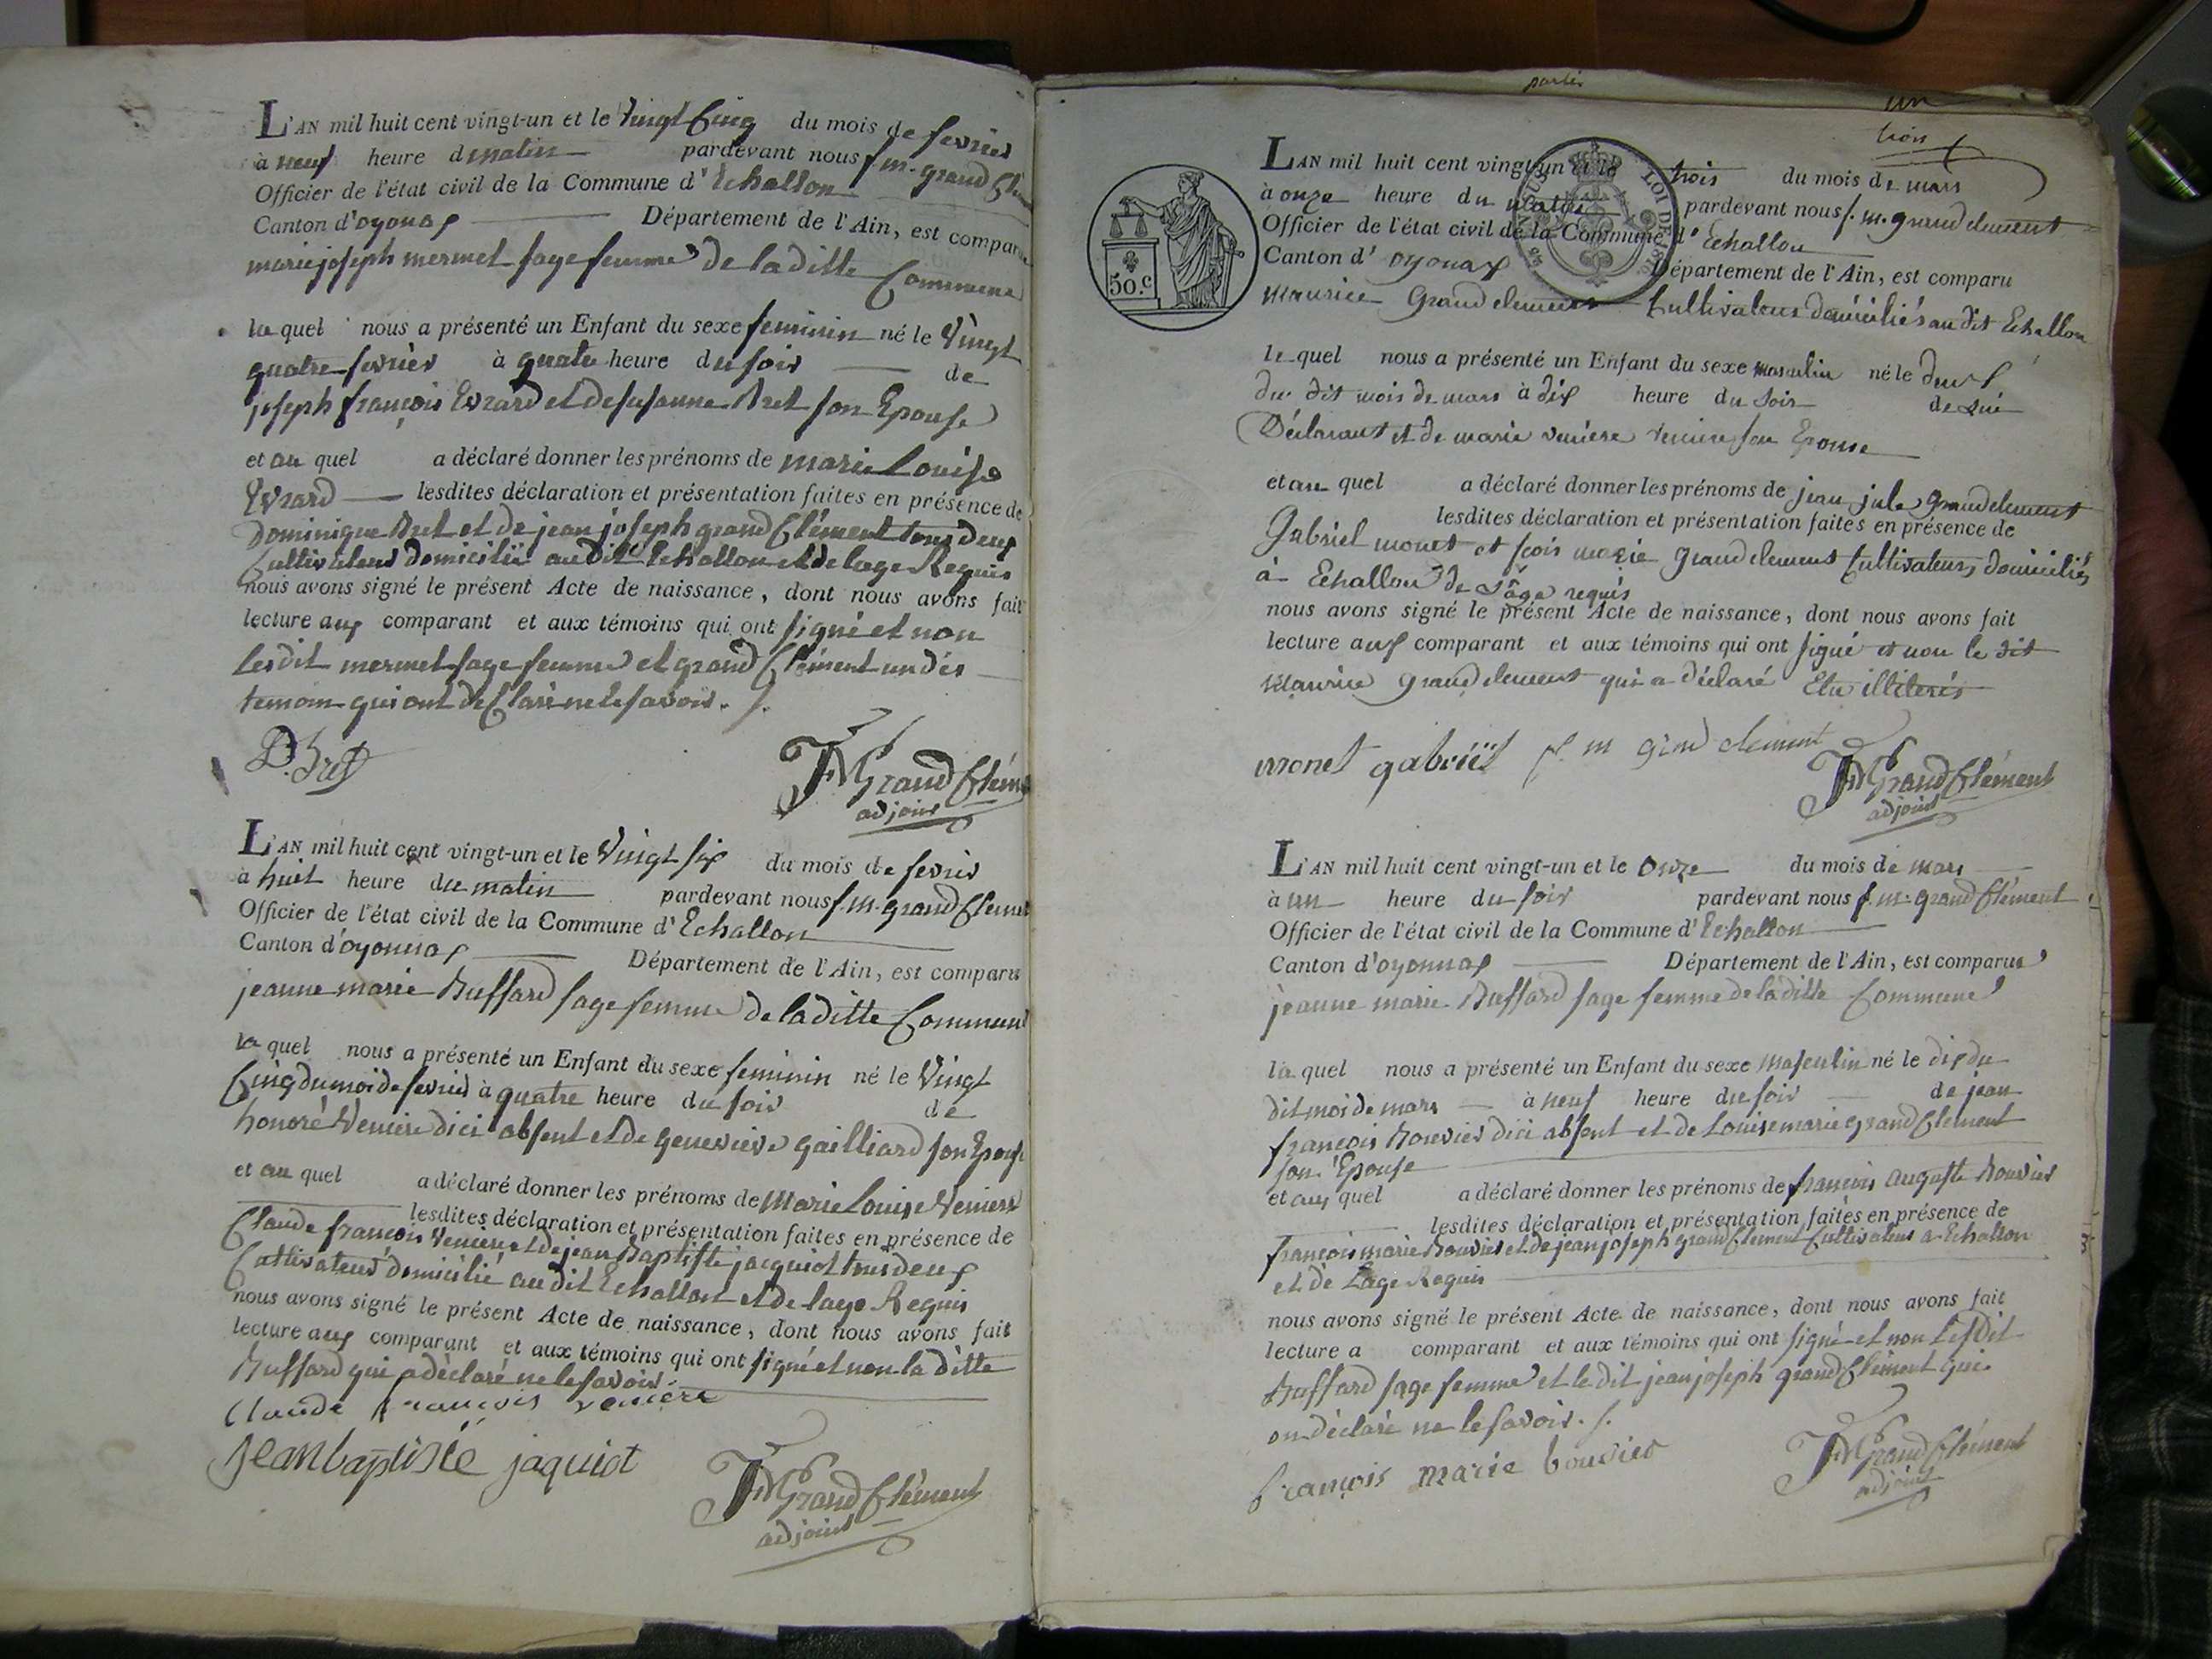 L'AN mil huit cent vingt-un et le Vingt Cinq du mois de fevrier
à neuf heure d matin pardevant nous f. m. grand Clém
Officier de l'état civil de la Commune d'Echallon
Canton d'oyonax Département de l'Ain, est comparu
marie joseph mermet sage femme de la ditte Commune
la quel nous a présenté un Enfant du sexe feminin né le Vingt
quatre fevrier à quatre heure du soir de
joseph françois Evrard et de susanne Bret son Epouse
et au quel a déclaré donner les prénoms de marie Louise
Evrard lesdites déclaration et présentation faites en présence de
Dominique Bret et de jean joseph grand Clément tous deux
Cultivateur domicilié au dit Echallon et de lage Requis
nous avons signé le présent Acte de naissance, dont nous avons fait
lecture aux comparant et aux témoins qui ont signé et non
lesdit mermet sage femme et grand Clément un des
temoin qui ont déClaré ne le savoir.
D. Bret
JM Grand Clém
adjoint
L'AN mil huit cent vingt-un et le Vingt six du mois de fevrier
à huit heure du matin pardevant nous f. m. grand Clément
Officier de l'état civil de la Commune d'Echallon
Canton d'oyonnax Département de l'Ain, est comparu
jeanne marie Buffard sage femme de la ditte Commune
la quel nous a présenté un Enfant du sexe feminin né le Vingt
Cinq du moi de fevrier à quatre heure du soir de
honoré Veniere dici absent et de genevieve gailliard son Epouse
et au quel a déclaré donner les prénoms de Marie Louise Veniere
lesdites déclaration et présentation faites en présence de
Claude françois Veniere et de jean Baptiste jacquiot tous deux
Cultivateur domicilié au dit Echallon et de laye Requis
nous avons signé le présent Acte de naissance, dont nous avons fait
lecture aux comparant et aux témoins qui ont signé et non la ditte
Buffard qui a déclaré ne le savoir.
Claude francois veniere
jeanbaptiste jaquiot
JM Grand Clément
adjoint
partie
un
tion
50.c
LOI DE
L'AN mil huit cent vingt-un et le trois du mois de mars
à onze heure du matin pardevant nous f. m. grandclement
Officier de l'état civil de la Commune d'Echallon
Canton d'oyonax Département de l'Ain, est comparu
Maurice Grandclement Cultivateur domiciliés au dit Echallon
le quel nous a présenté un Enfant du sexe masculin né le deux
du dit mois de mars à dix heure du soir de lui
Déclarant et de marie veniere veniere son Epouse
et au quel a déclaré donner les prénoms de jean jule grandclement
lesdites déclaration et présentation faites en présence de
Gabriel monet et fçois marie grandclement Cultivateurs domiciliés
à Echallon de l'âge requis
nous avons signé le présent Acte de naissance, dont nous avons fait
lecture aux comparant et aux témoins qui ont signé et non le dit
Maurice grandclement qui a déclaré Etre illiterés
monet gabriel f. m grand clement
JM Grand Clément
adjoint
L'AN mil huit cent vingt-un et le Onze du mois de mars
à un heure du soir pardevant nous f. m. grand Clément
Officier de l'état civil de la Commune d'Echallon
Canton d'oyonnax Département de l'Ain, est comparue
jeanne marie Buffard sage femme de la ditte Commune
la quel nous a présenté un Enfant du sexe masculin né le dix du
dit moi de mars à neuf heure du soir de jean
françois Bouvier dici absent et de Louise marie grand Clement
son Epouse
et aux quel a déclaré donner les prénoms de françois auguste Bouvier
lesdites déclaration et présentation faites en présence de
françois marie Bouvier et de jean joseph grand Clement Cultivateur a Echallon
et de Lage Requis
nous avons signé le présent Acte de naissance, dont nous avons fait
lecture a comparant et aux témoins qui ont signé et non lesdit
Buffard sage femme et le dit jean joseph grand Clément qui
on déclaré ne le savoir.
françois marie bouvier
JM Grand Clément
adjoint